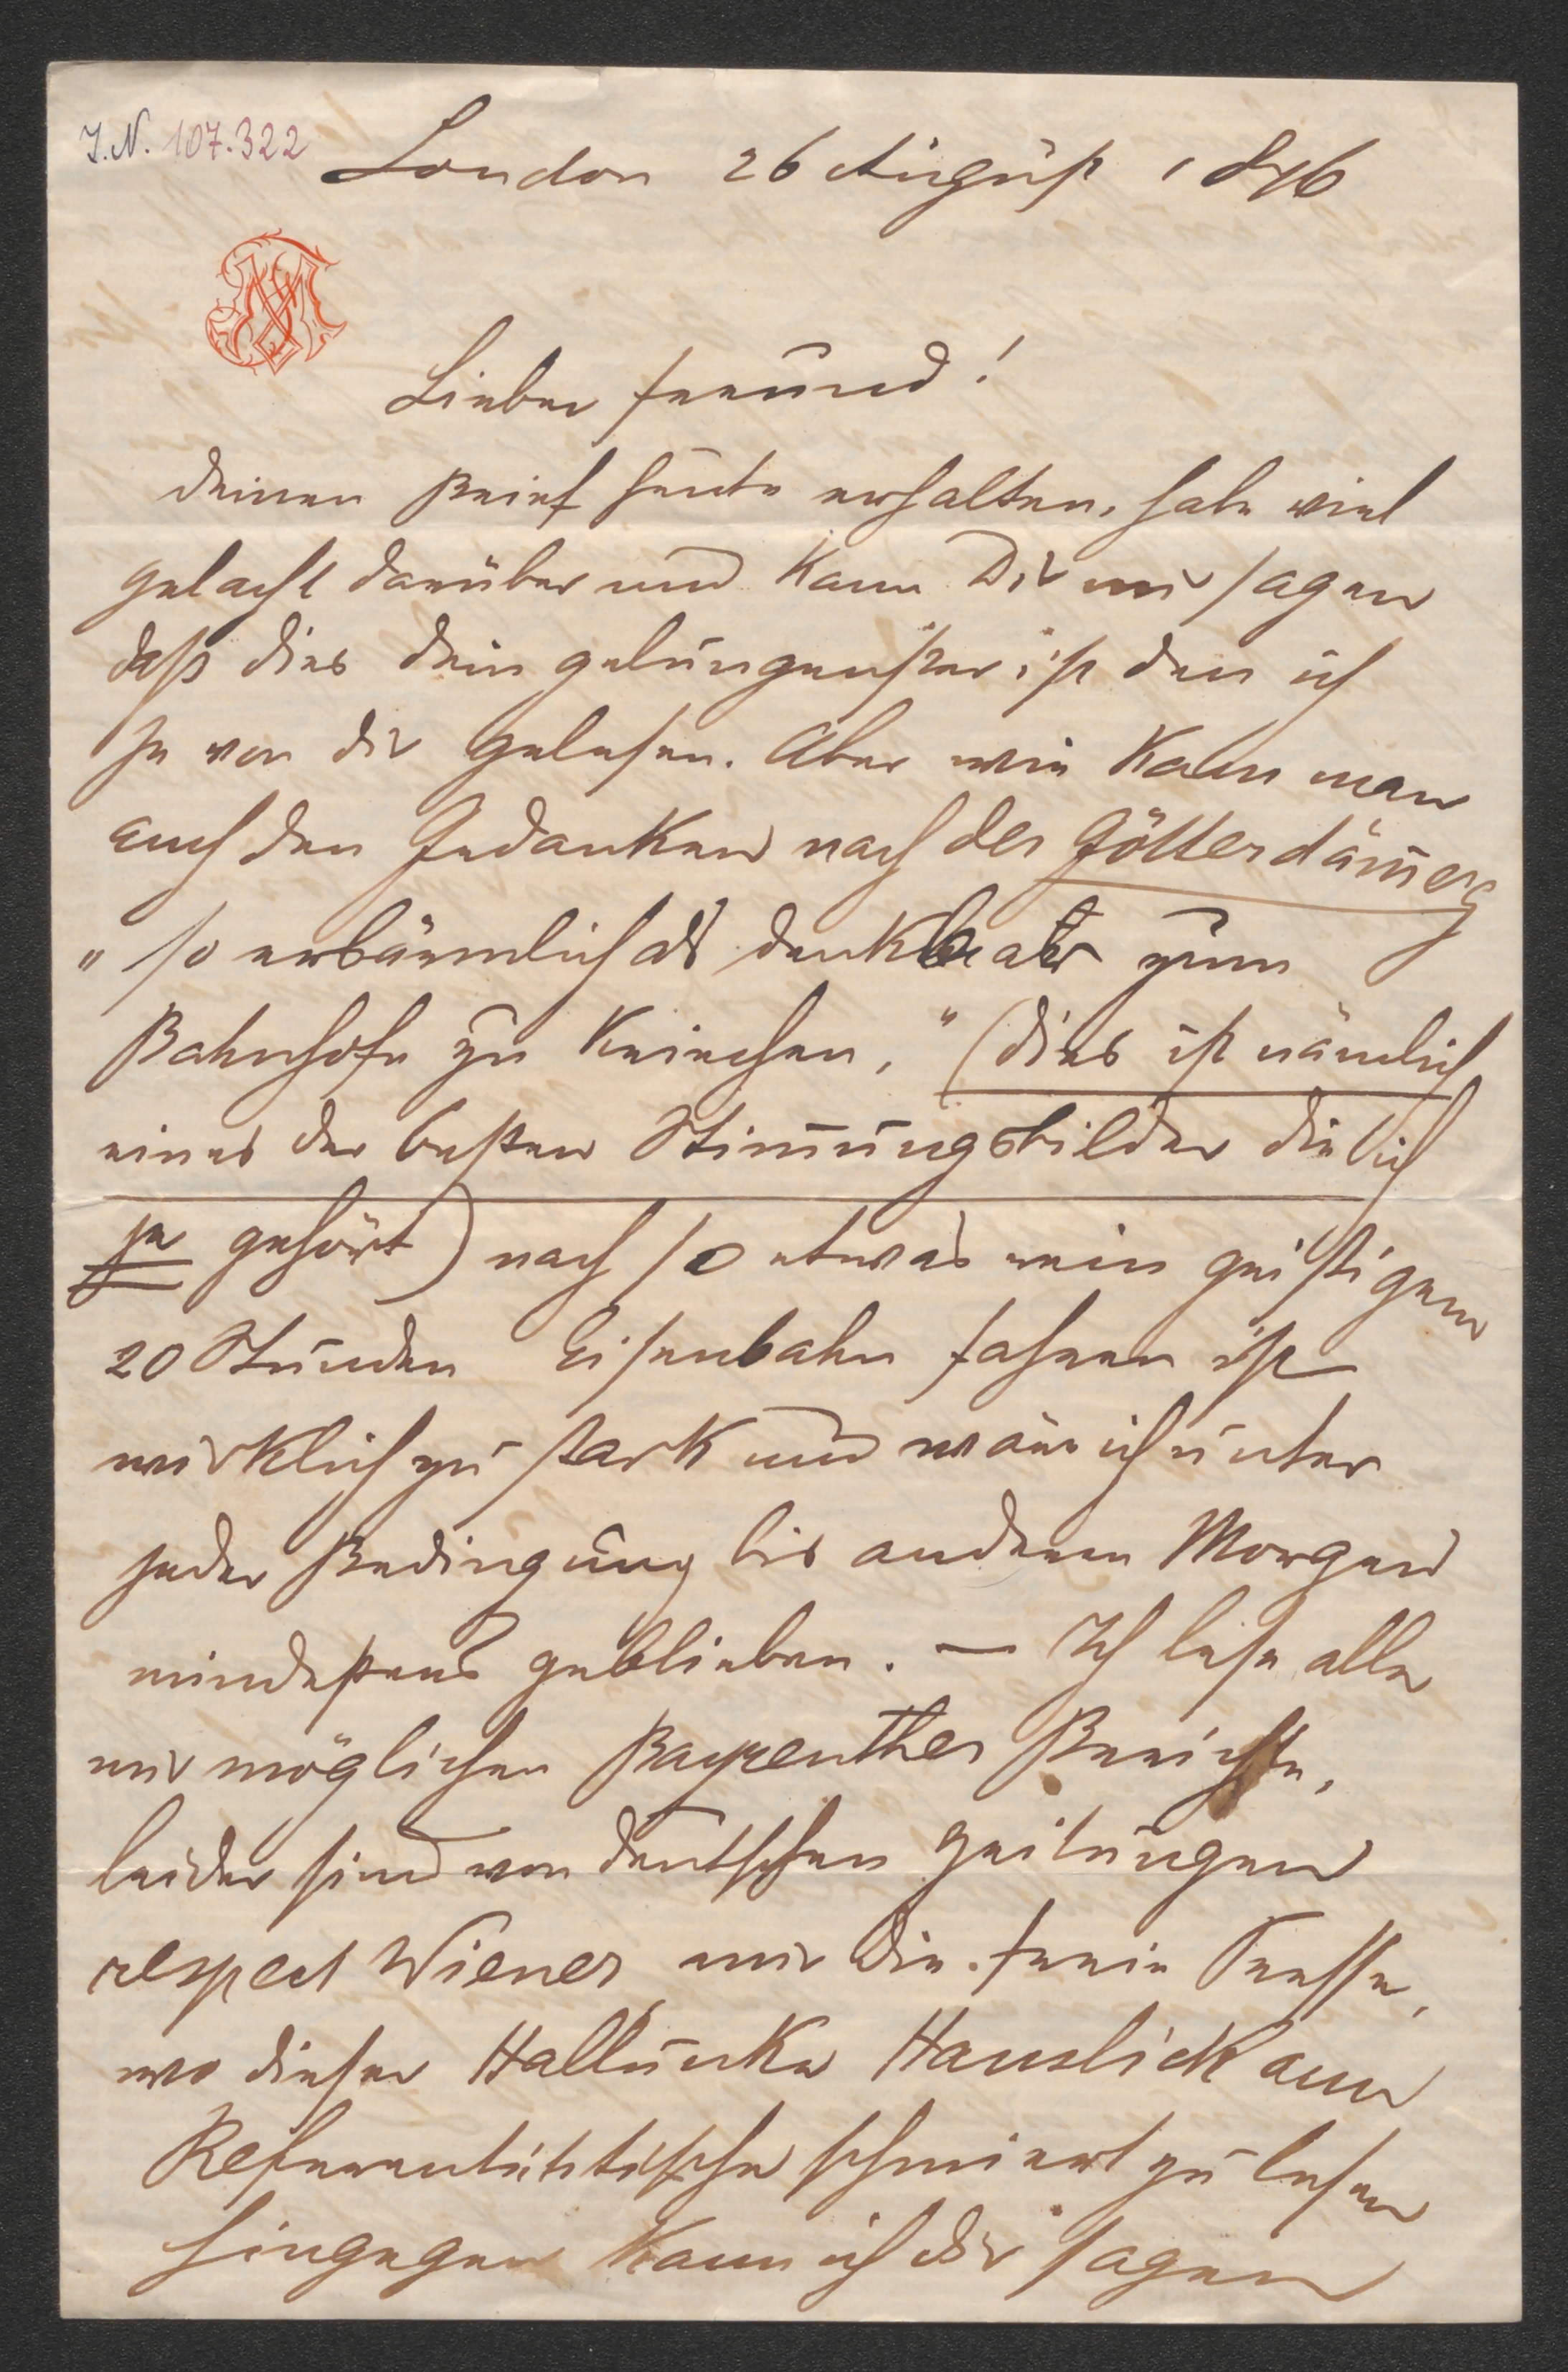 I.N. 107.322
London 26 August 1876
Lieber Freund!
Deinen Brief heute erhalten, habe viel
gelacht darüber und kann Dir nur sagen
daß dies Dein gelungenster ist den ich
je von Dir gelesen. Aber wie kann man
auch den Gedanken nach der Götterdämerg
„so erbärmlich als denkbar zum
Bahnhofe zu kriechen," (dies ist nämlich
eines der besten Stim̅ungsbilder die ich
je gehört) nach so etwas rein geistigem
20 Stunden Eisenbahn fahren ist
wirklich zu stark und wäre ich unter
jeder Bedingung bis anderen Morgen
mindestens geblieben. — Ich lese alle
mir möglichen Bayreuther Berichte,
leider sind von deutschen Zeitungen
respect Wiener nur die freie Presse,
wo dieser Hallunke Hanslick am
schmiert zu lesen
hingegen kann ich dir sagen